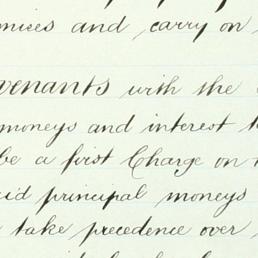 and carry on
venants with the
moneys and interest
be a first Charge on
principal moneys
take precedence over